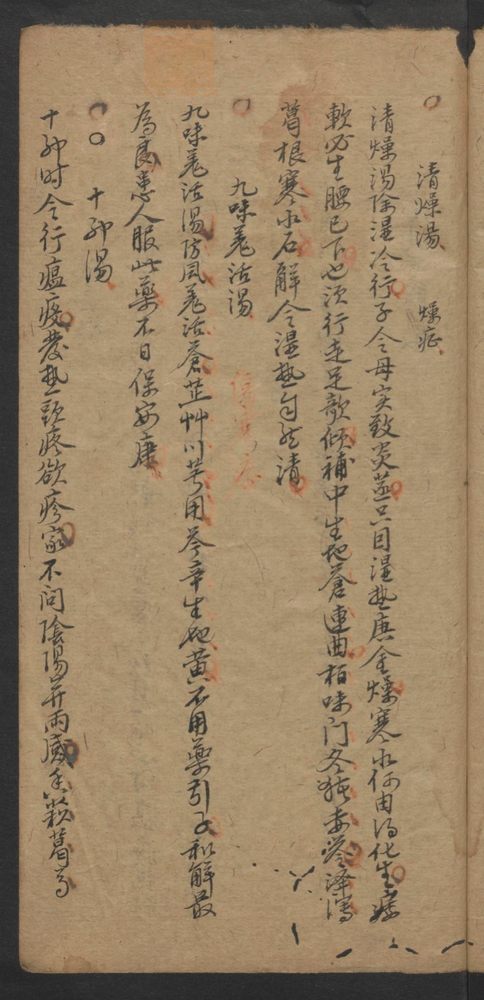 清燥湯 燥症
清燥湯除濕冷行子令母实致炎蒸只因濕热庚金燥寒水何由得化生痿
軟必生腰已下也須行走足歆傾補中生地蒼連曲栢味门冬猪赤苓澤瀉
葛根寒水石解令濕热自然清
九味羗活湯
九味羗活湯防風羗活蒼芷艸川芎用芩辛生地黄不用藥引子和解最
為良患人服此藥不日保安康
十神湯
十神时令行瘟疫發热頭疼欲疹家不问陰陽并兩感白叙葛